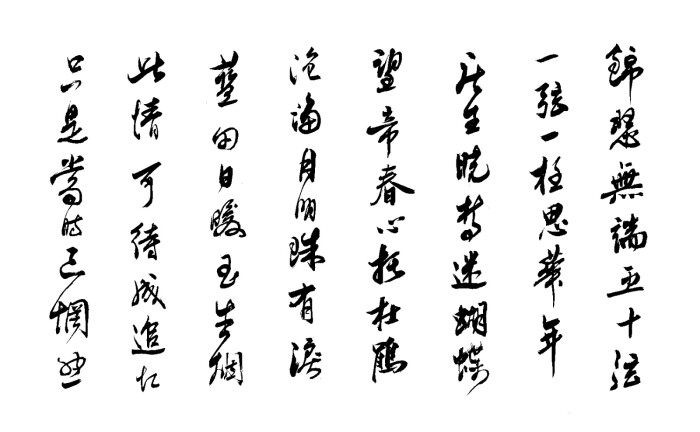 錦瑟無端五十弦
一弦一柱思華年
庄生曉夢迷蝴蝶
望帝春心托杜鵑
滄海月明珠有淚
藍田日暖玉生烟
此情可待成追忆
只是當時已惘然